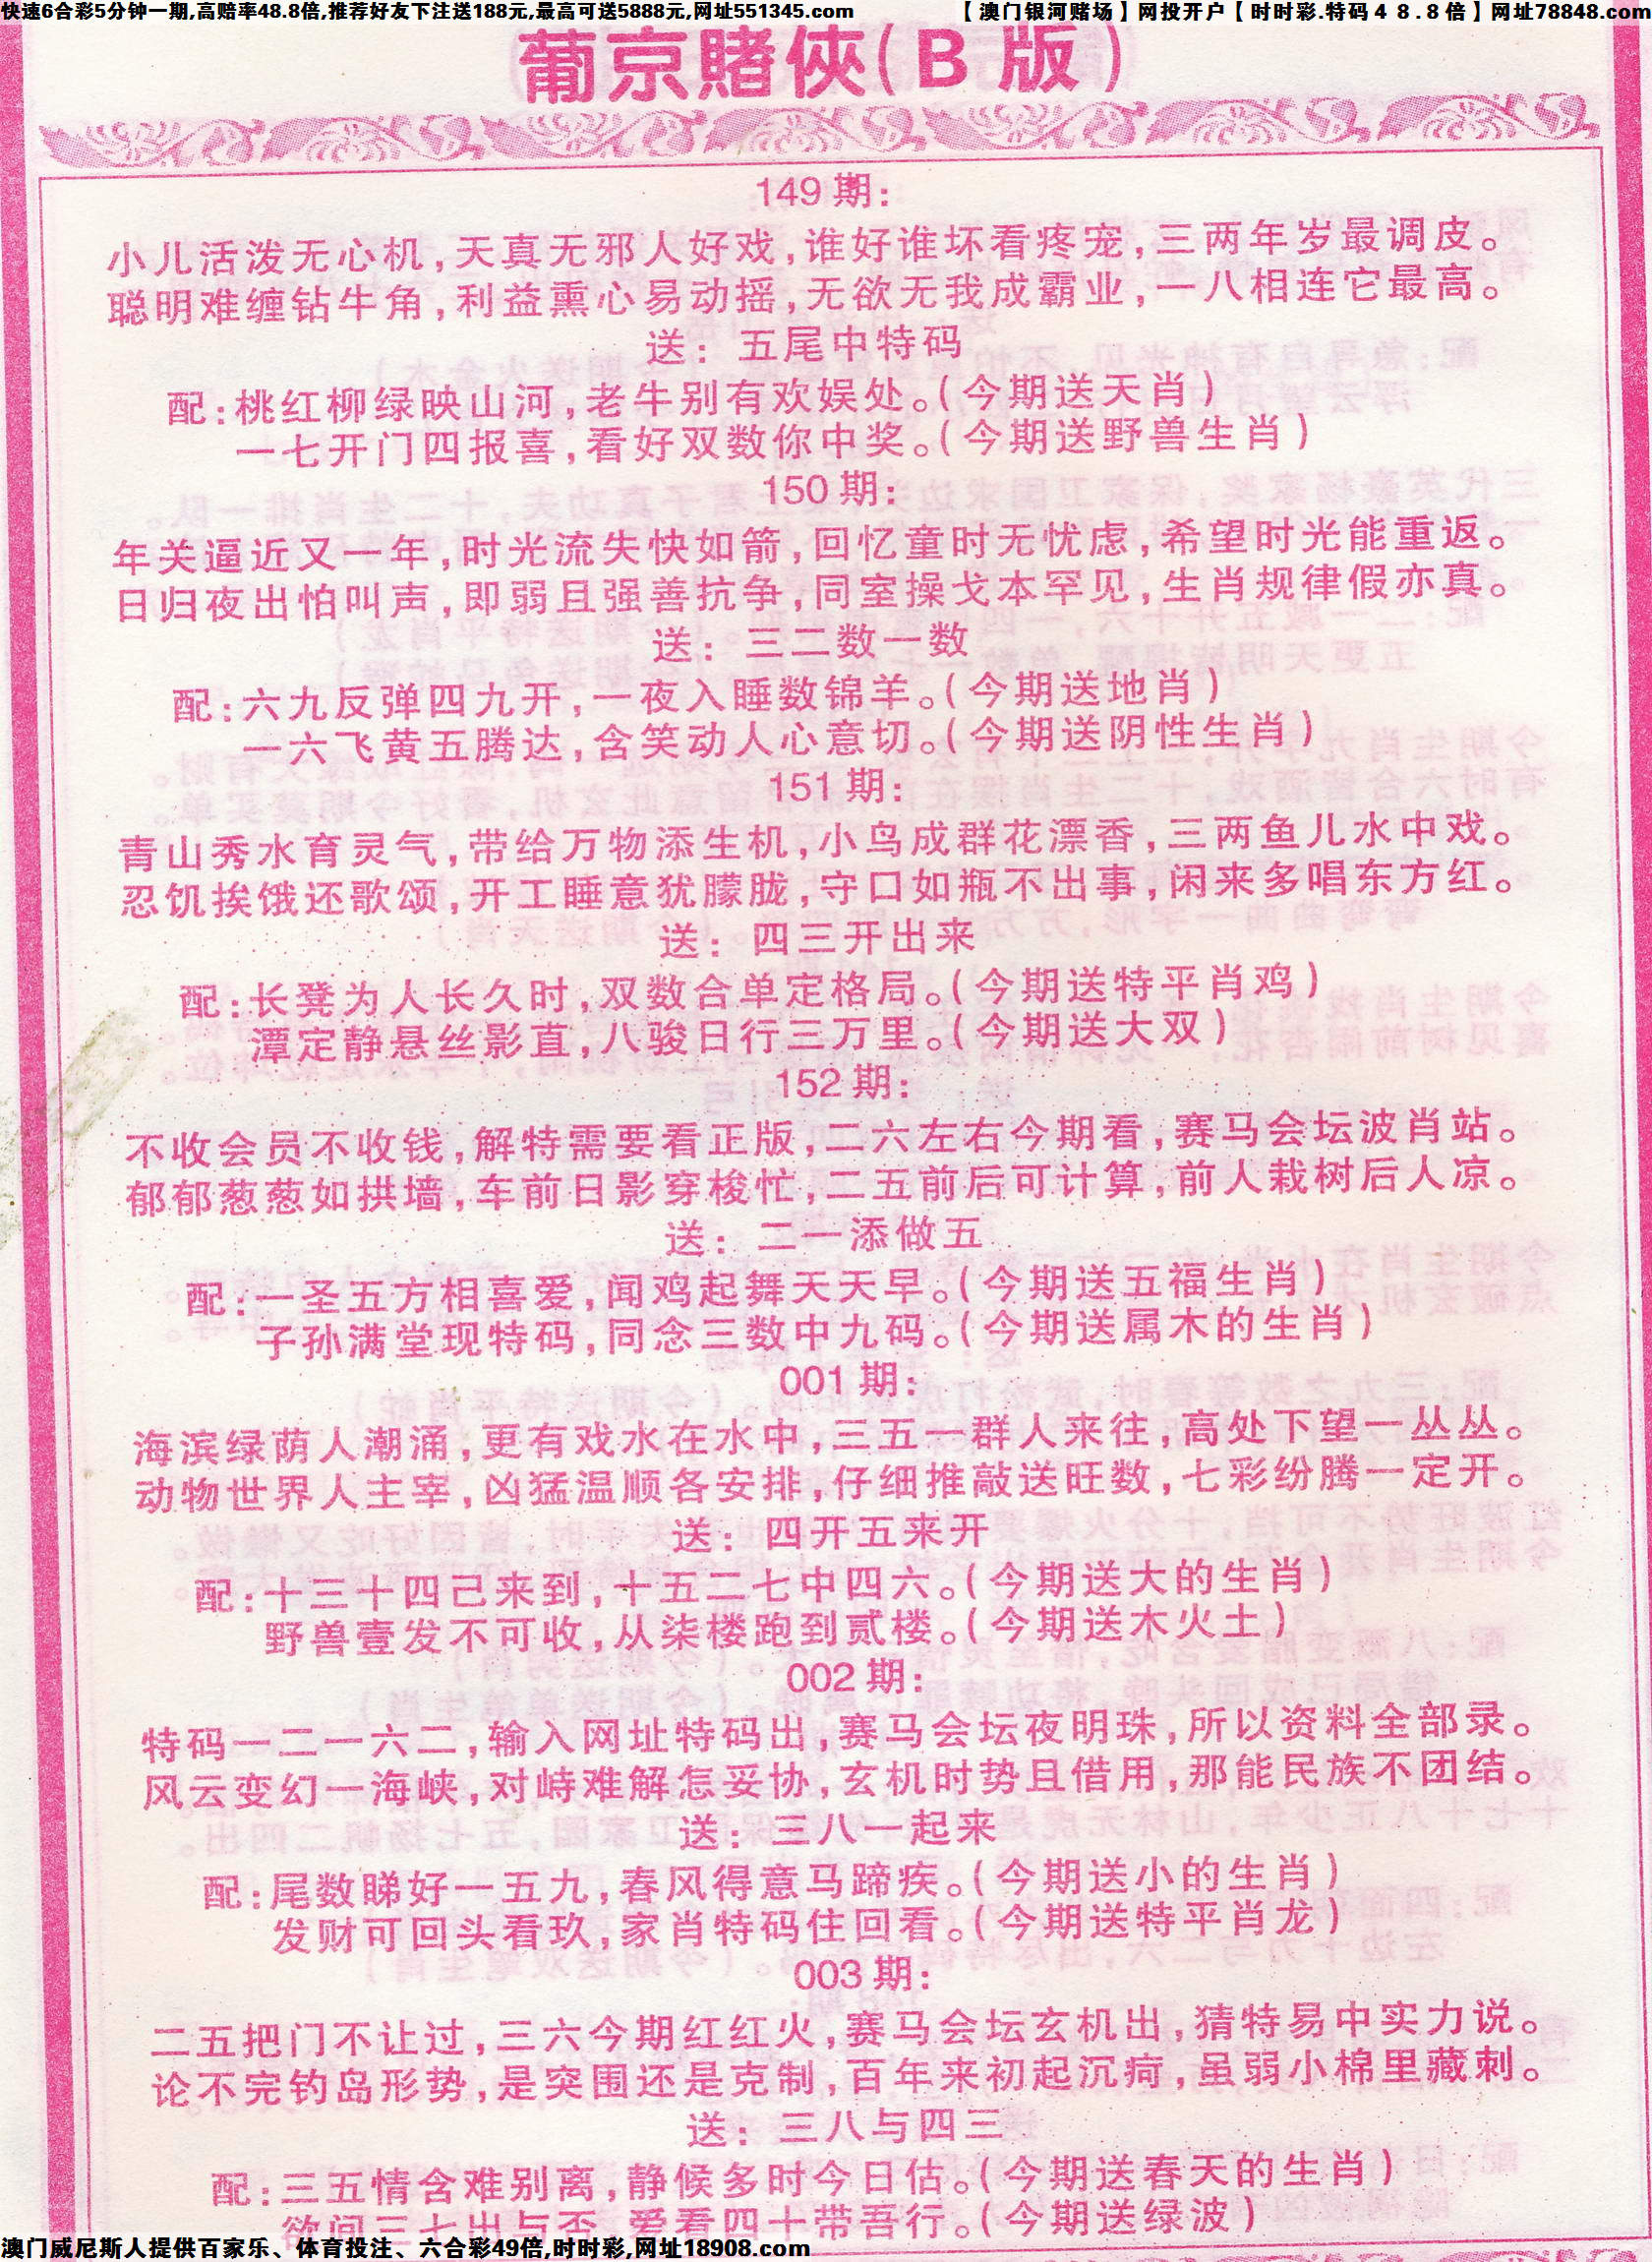 快速6合彩5分钟一期,高赔率48.8倍,推荐好友下注送188元,最高可送5888元,网址551345.com
【澳门银河赌场】网投开户【时时彩.特码48.8倍】网址78848.com
葡京賭俠(B版)
149期:
小儿活泼无心机,天真无邪人好戏,谁好谁坏看疼宠,三两年岁最调皮。
聪明难缠钻牛角,利益熏心易动摇,无欲无我成霸业,一八相连它最高。
送: 五尾中特码
配:桃红柳绿映山河,老牛别有欢娱处。(今期送天肖)
一七开门四报喜,看好双数你中奖。(今期送野兽生肖)
150期:
年关逼近又一年,时光流失快如箭,回忆童时无忧虑,希望时光能重返。
日归夜出怕叫声,即弱且强善抗争,同室操戈本罕见,生肖规律假亦真。
送: 三二数一数
配:六九反弹四九开,一夜入睡数锦羊。(今期送地肖)
一六飞黄五腾达,含笑动人心意切。(今期送阴性生肖)
151期:
青山秀水育灵气,带给万物添生机,小鸟成群花漂香,三两鱼儿水中戏。
忍饥挨饿还歌颂,开工睡意犹朦胧,守口如瓶不出事,闲来多唱东方红。
送: 四三开出来
配:长凳为人长久时,双数合单定格局。(今期送特平肖鸡)
潭定静悬丝影直,八骏日行三万里。(今期送大双)
152期:
不收会员不收钱,解特需要看正版,二六左右今期看,赛马会坛波肖站。
郁郁葱葱如拱墙,车前日影穿梭忙,二五前后可计算,前人栽树后人凉。
送: 二一添做五
配:一圣五方相喜爱,闻鸡起舞天天早。(今期送五福生肖)
子孙满堂现特码,同念三数中九码。(今期送属木的生肖)
001期:
海滨绿荫人潮涌,更有戏水在水中,三五一群人来往,高处下望一丛丛。
动物世界人主宰,凶猛温顺各安排,仔细推敲送旺数,七彩纷腾一定开。
送: 四开五来开
配:十三十四己来到,十五二七中四六。(今期送大的生肖)
野兽壹发不可收,从柒楼跑到贰楼。(今期送木火土)
002期:
特码一二一六二,输入网址特码出,赛马会坛夜明珠,所以资料全部录。
风云变幻一海峡,对峙难解怎妥协,玄机时势且借用,那能民族不团结。
送: 三八一起来
配:尾数睇好一五九,春风得意马蹄疾。(今期送小的生肖)
发财可回头看玖,家肖特码住回看。(今期送特平肖龙)
003期:
二五把门不让过,三六今期红红火,赛马会坛玄机出,猜特易中实力说。
论不完钓岛形势,是突围还是克制,百年来初起沉疴,虽弱小棉里藏刺。
送: 三八与四三
配:三五情含难别离,静候多时今日估。(今期送春天的生肖)
欲问三七出与否,爱看四十带吾行。(今期送绿波)
澳门威尼斯人提供百家乐、体育投注、六合彩49倍,时时彩,网址18908.com